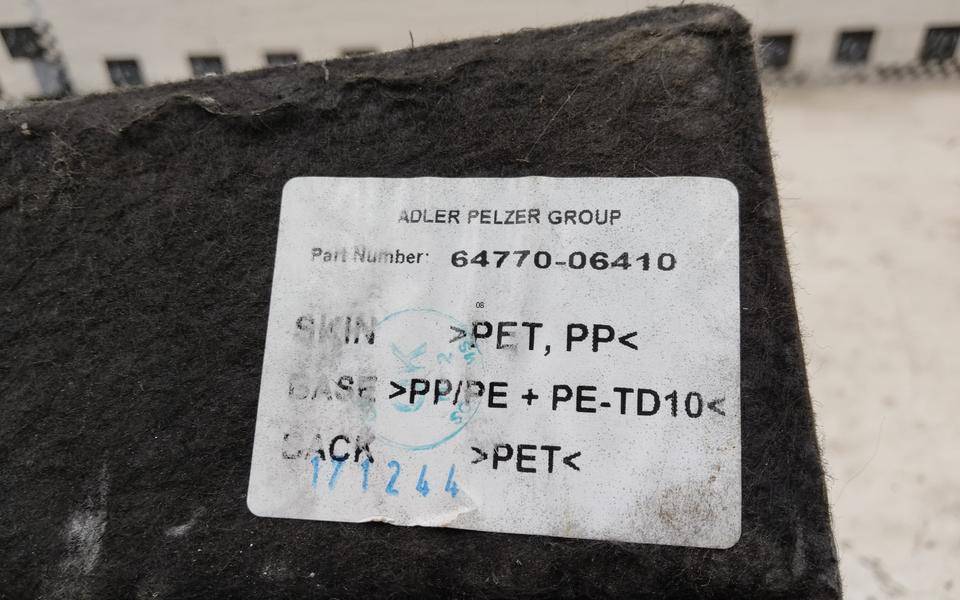 ADLER PELZER GROUP
Part Number: 64770-06410
08
SKIN >PET, PP<
BASE >PP/PE + PE-TD10<
BACK >PET<
171244